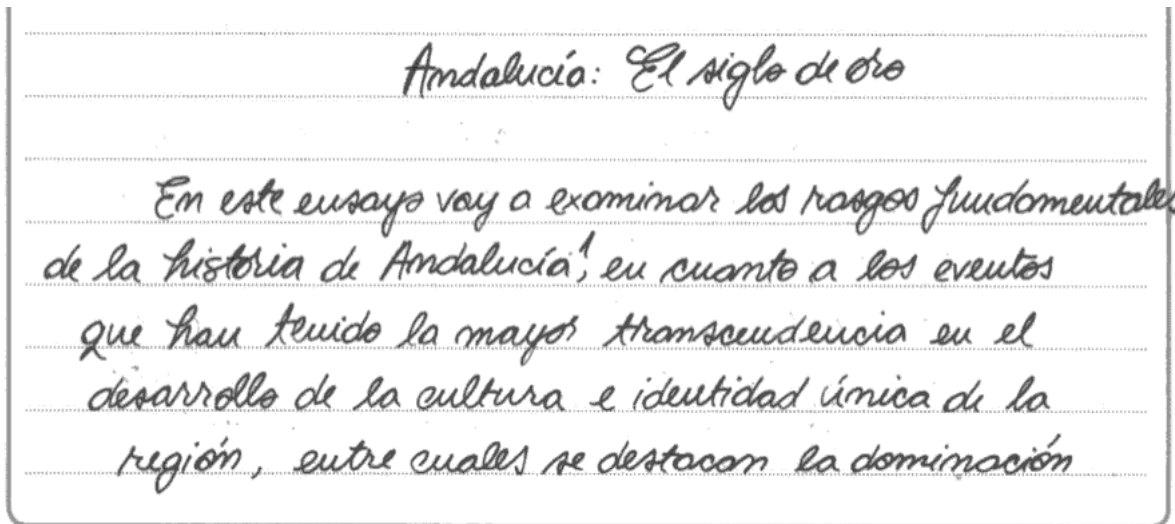 Andalucía: El siglo de oro
En este ensayo voy a examinar los rasgos fundamentales
de la historia de Andalucía¹, en cuanto a los eventos
que han tenido la mayor transcendencia en el
desarrollo de la cultura e identidad única de la
región, entre cuales se destacan la dominación